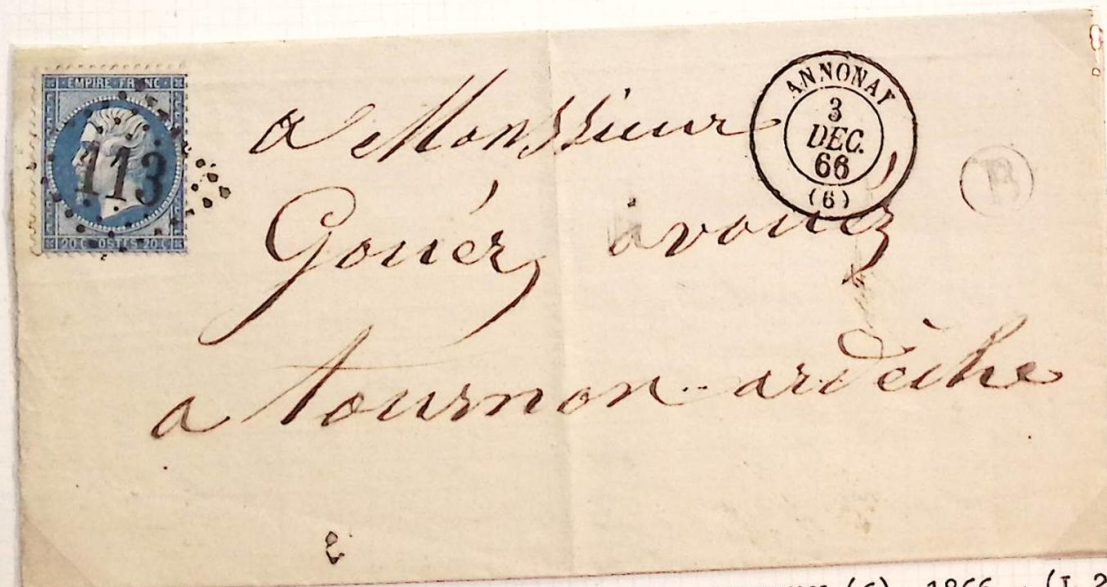 EMPIRE FRANC
113
20 C POSTES 20 C
ANNONAY
3
DEC.
66
(6)
B
a Monssieur
Gouéz, avouéz
a tournon ardèche
(6) 1866